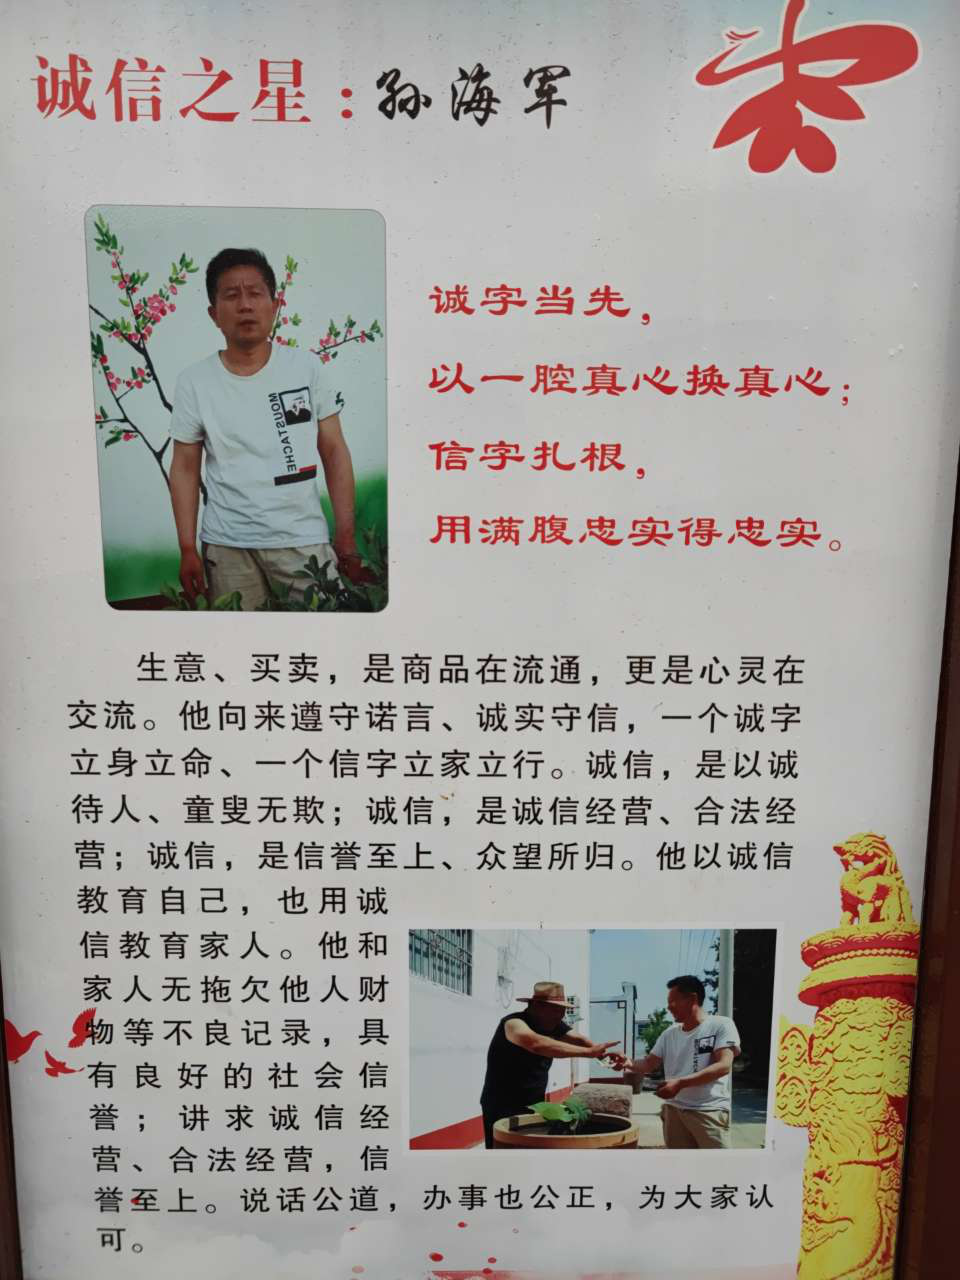 诚信之星:孙海军
诚字当先，
以一腔真心换真心；
信字扎根，
用满腹忠实得忠实。
MOUSTACHE
生意、买卖，是商品在流通，更是心灵在
交流。他向来遵守诺言、诚实守信，一个诚字
立身立命、一个信字立家立行。诚信，是以诚
待人、童叟无欺；诚信，是诚信经营、合法经
营；诚信，是信誉至上、众望所归。他以诚信
教育自己，也用诚
信教育家人。他和
家人无拖欠他人财
物等不良记录，具
有良好的社会信
誉；讲求诚信经
营、合法经营，信
誉至上。说话公道，办事也公正，为大家认
可。